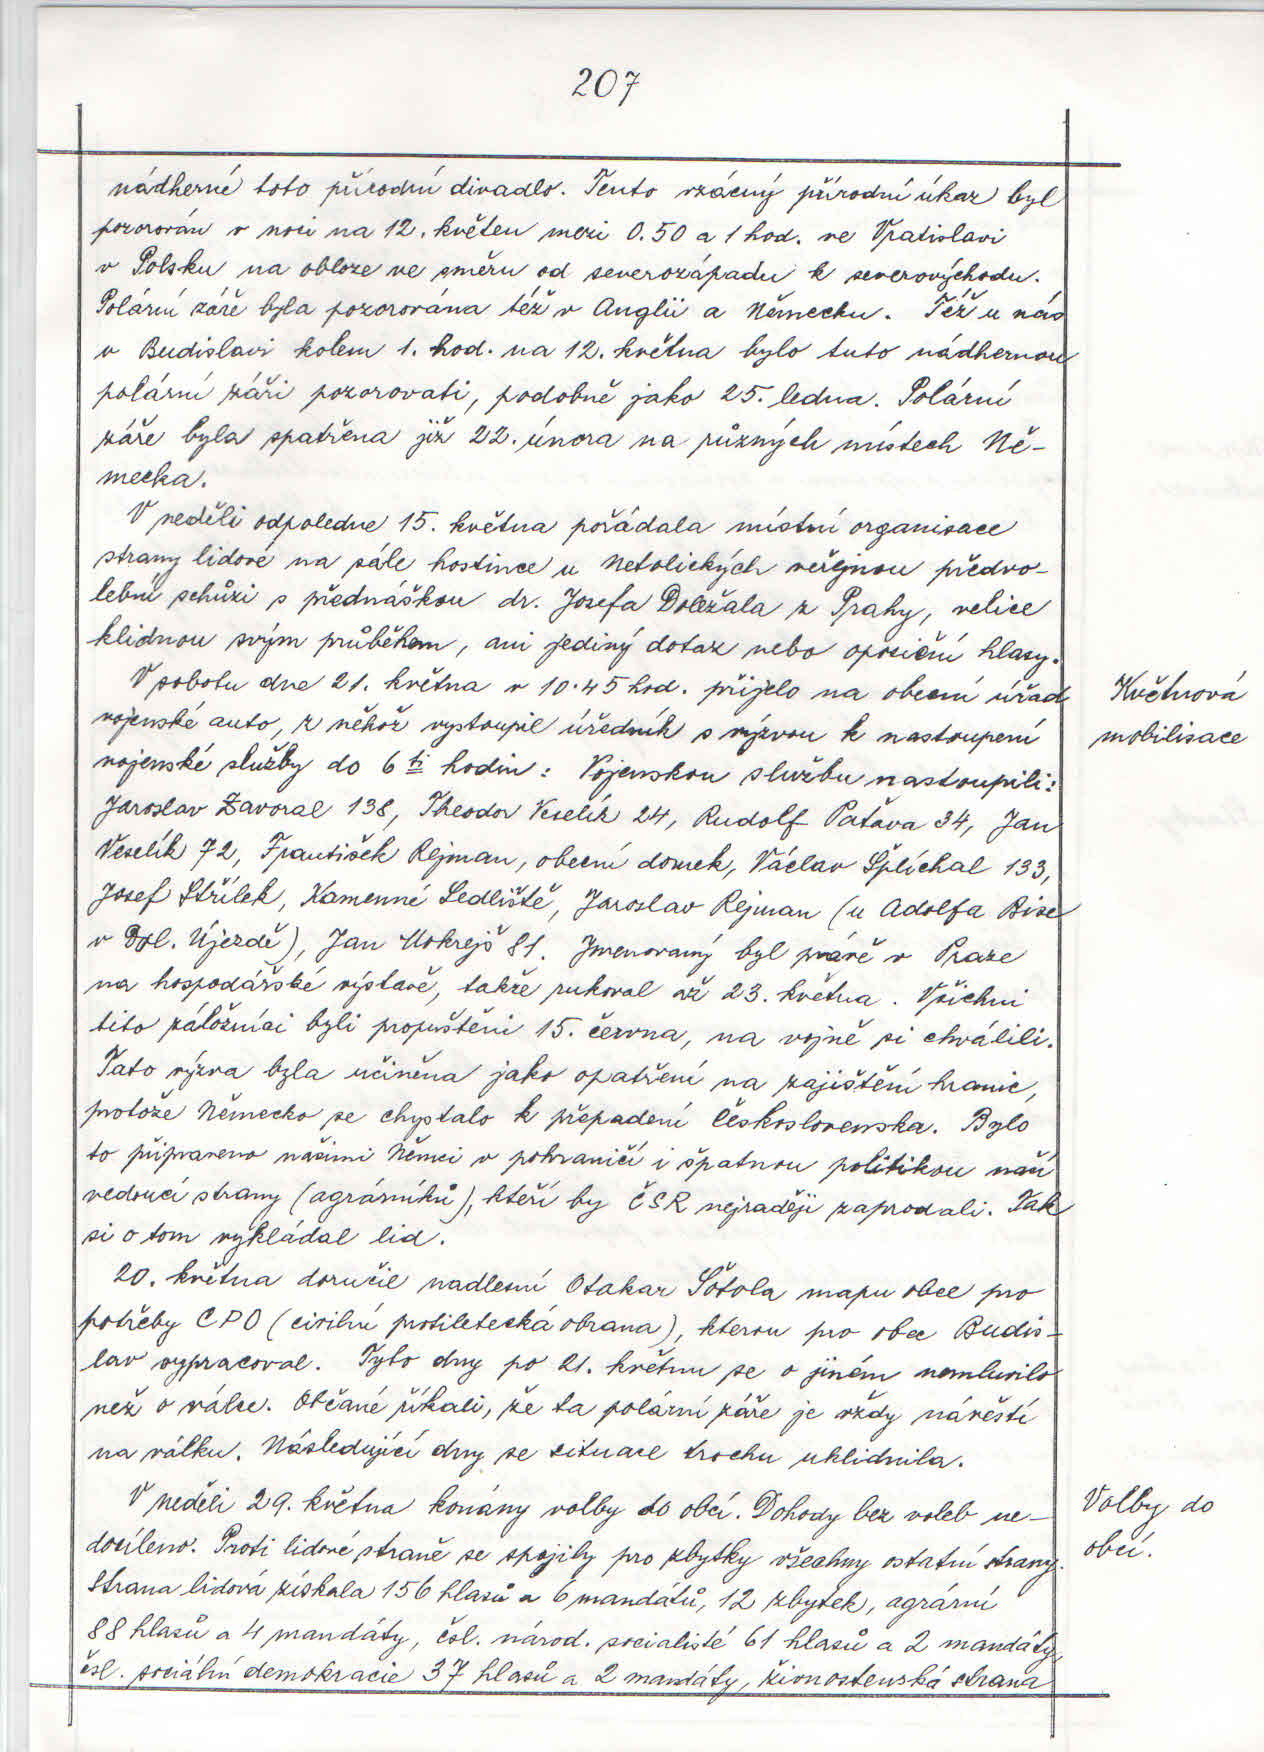 207
nádherné toto přírodní divadlo. Tento vzácný přírodní úkaz byl
pozorován v noci na 12. květen mezi 0.50 a 1 hod. ve Vratislavi
v Polsku na obloze ve směru od severozápadu k severovýchodu.
Polární záře byla pozorována též v Anglii a Německu. Též u nás
v Budislavi kolem 1. hod. na 12. května bylo tuto nádhernou
polární záři pozorovati, podobně jako 25. ledna. Polární
záře byla spatřena již 22. února na různých místech Ně-
mecka.
V neděli odpoledne 15. května pořádala místní organisace
strany lidové na sále hostince u Netolických veřejnou předvo-
lební schůzi s přednáškou dr. Josefa Doležala z Prahy, velice
klidnou svým průběhem, ani jediný dotaz nebo oposiční hlasy.
V sobotu dne 21. května v 10.45 hod. přijelo na obecní úřad
vojenské auto, z něhož vystoupil úředník s výzvou k nastoupení
vojenské služby do 6 ti hodin: Vojenskou službu nastoupili:
Jaroslav Zavoral 138, Theodor Veselík 24, Rudolf Paťava 34, Jan
Veselík 72, František Rejman, obecní domek, Václav Šplíchal 133,
Josef Střílek, Kamenné Sedliště, Jaroslav Rejman (u Adolfa Bise
v Dol. Újezdě), Jan Mokrejš 81. Jmenovaný byl právě v Praze
na hospodářské výstavě, takže rukoval až 23. května. Všichni
tito záložníci byli propuštěni 15. června, na vojně si chválili.
Tato výzva byla učiněna jako opatření na zajištění hranic,
protože Německo se chystalo k přepadení Československa. Bylo
to připraveno našimi Němci v pohraničí i špatnou politikou naší
vedoucí strany (agrárníků), kteří by ČSR nejraději zaprodali. Tak
si o tom vykládal lid.
20. května doručil nadlesní Otakar Šotola mapu obce pro
potřeby CPO (civilní protiletecká obrana), kterou pro obec Budis-
lav vypracoval. Tyto dny po 21. květnu se o jiném nemluvilo
než o válce. Občané říkali, že ta polární záře je vždy návěstí
na válku. Následující dny se situace trochu uklidnila.
V neděli 29. května konány volby do obcí. Dohody bez voleb ne-
docíleno. Proti lidové straně se spojily pro zbytky všechny ostatní strany.
Strana lidová získala 156 hlasů a 6 mandátů, 12 zbytek, agrární
88 hlasů a 4 mandáty, čsl. národ. socialisté 61 hlasů a 2 mandáty,
čsl. sociální demokracie 37 hlasů a 2 mandáty, živnostenská strana
Květnová
mobilisace
Volby do
obcí.